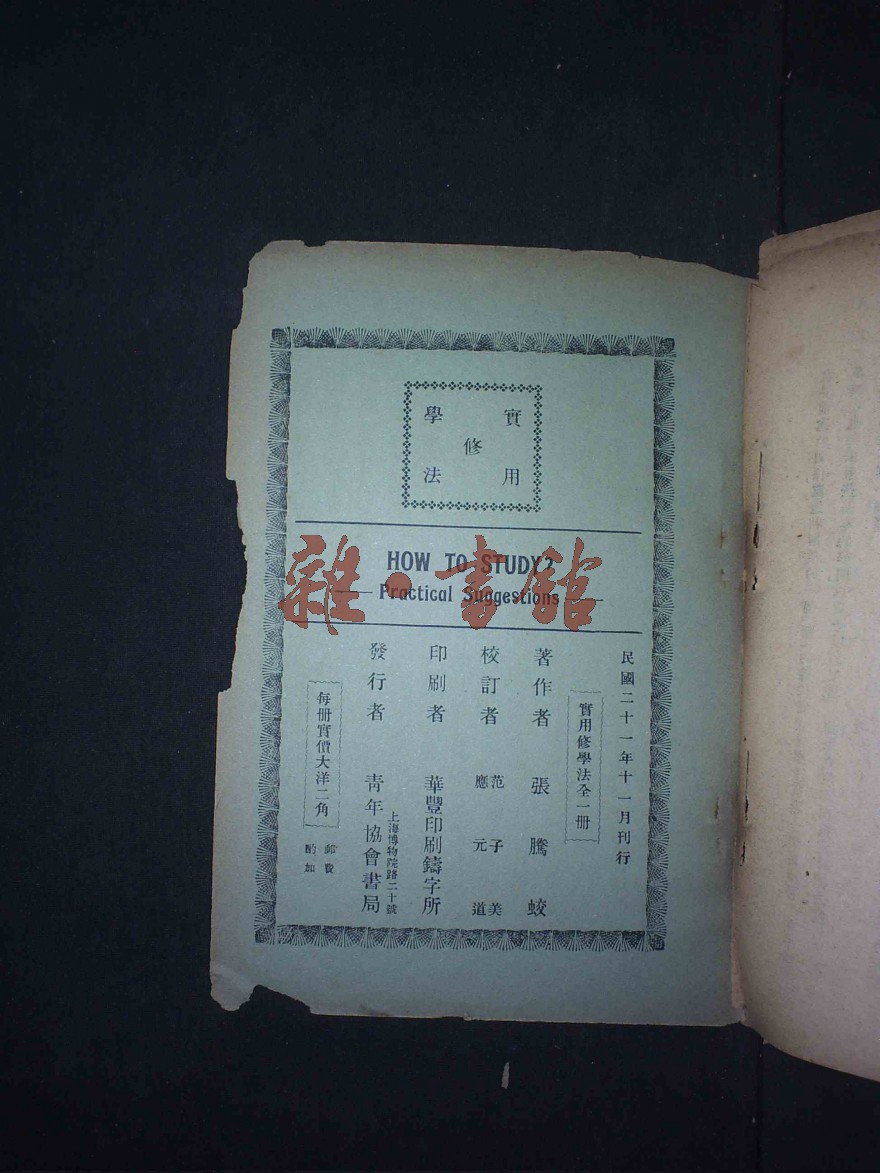 實用
修
學法
HOW TO STUDY?
Practical Suggestions
雜·書館
民國二十一年十一月刊行
實用修學法全一冊
著作者 張騰蛟
校訂者 范子美
應元道
印刷者 華豐印刷鑄字所
發行者 青年協會書局
上海博物院路二十號
每冊實價大洋二角
郵費
酌加